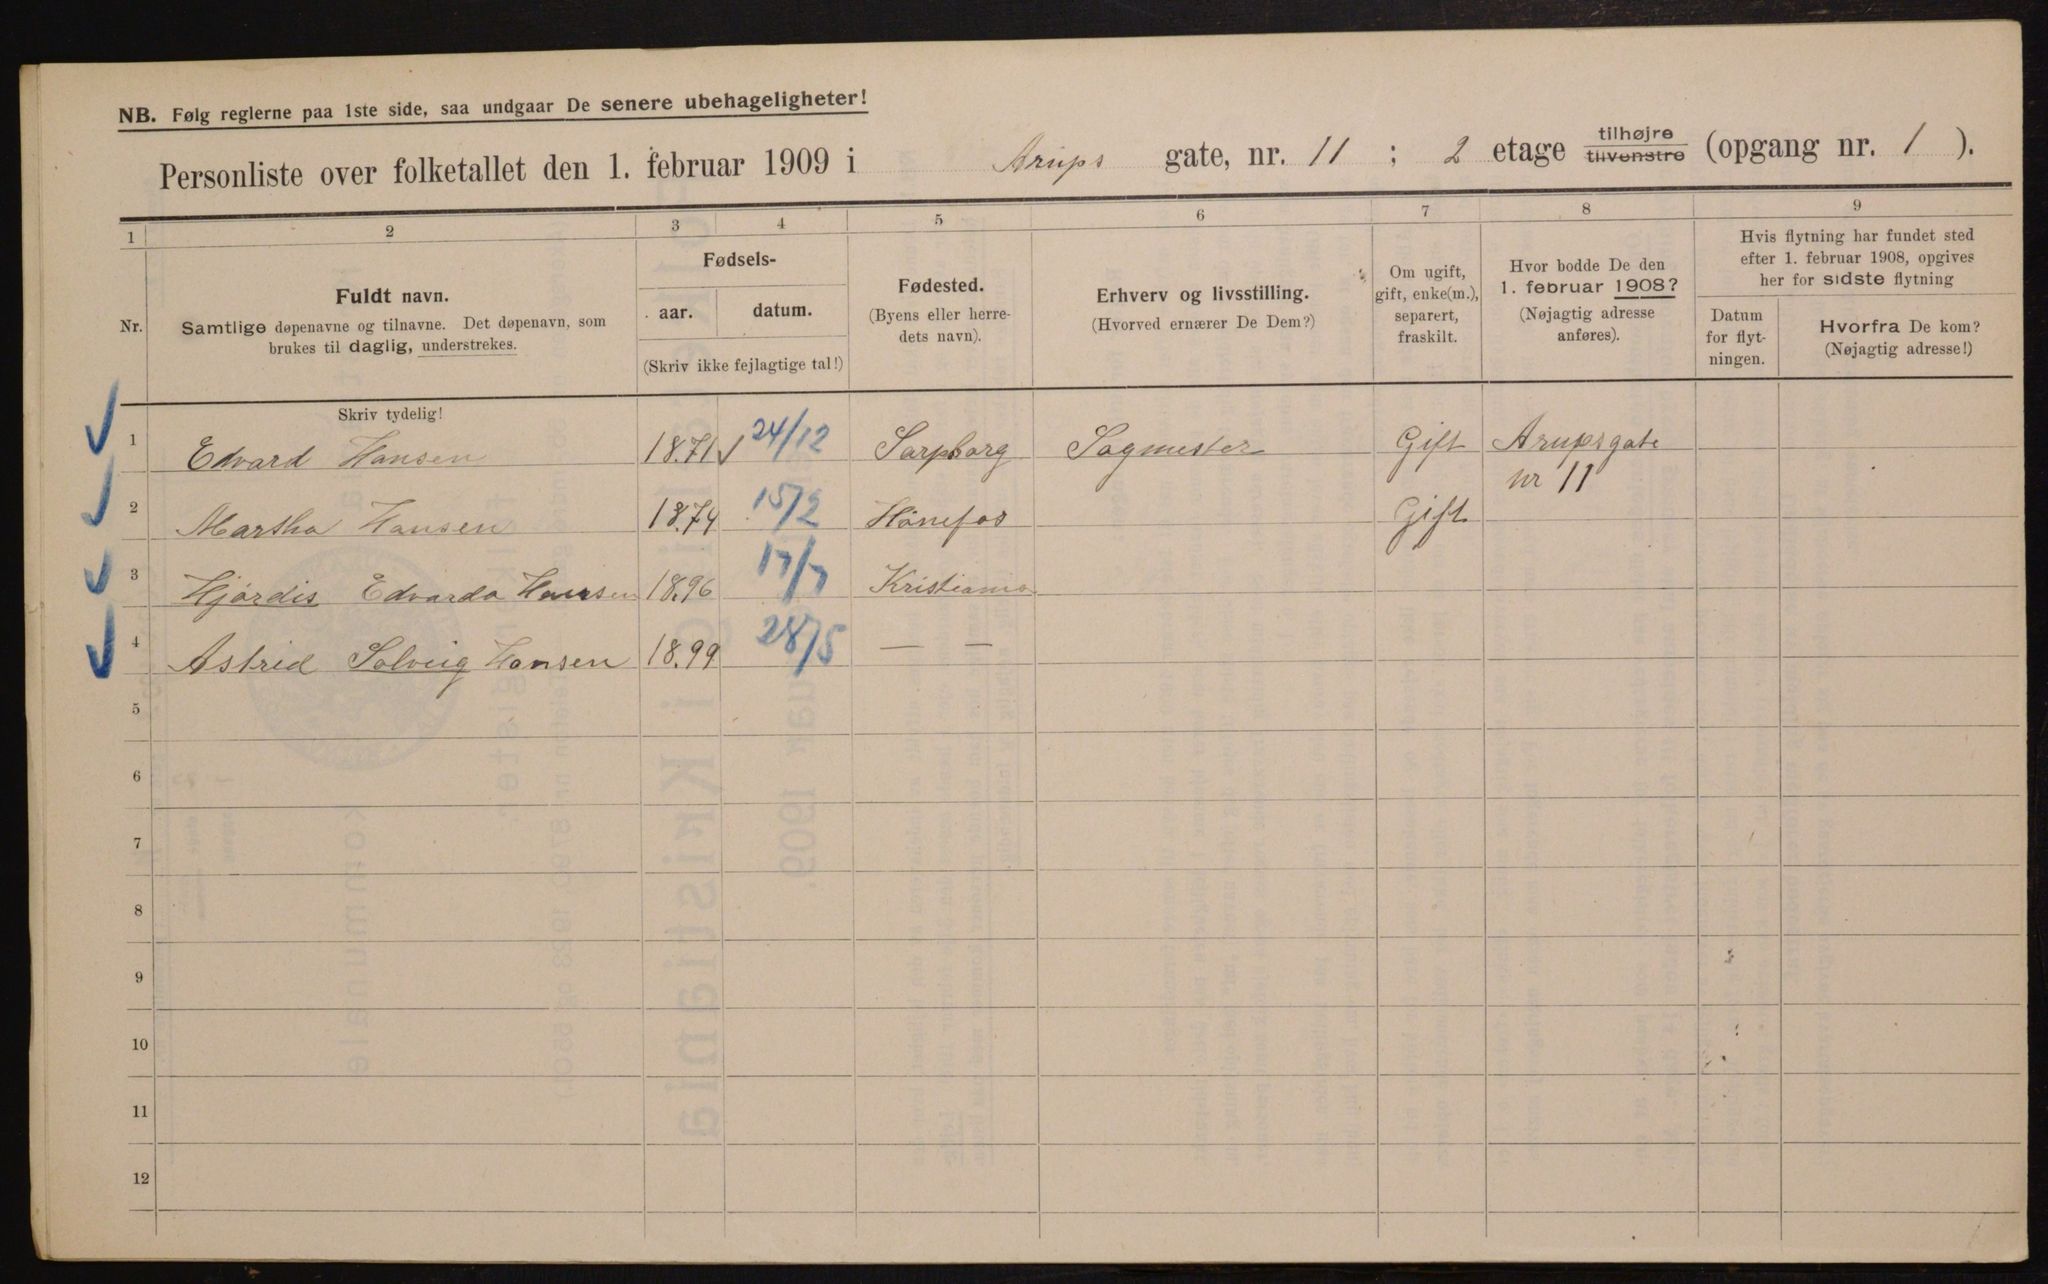 NB. Følg reglerne paa 1ste side, saa undgaar De senere ubehageligheter!
Personliste over folketallet den 1. februar 1909 i Arups gate, nr. 11 ; 2 etage tilhøjre tilvenstre (opgang nr. 1 ).
1 2 3 4 5 6 7 8 9
Nr.
Fuldt navn.
Samtlige døpenavne og tilnavne. Det døpenavn, som
brukes til daglig, understrekes.
Fødsels-
aar. datum.
(Skriv ikke fejlagtige tal!)
Fødested.
(Byens eller herre-
dets navn).
Erhverv og livsstilling.
(Hvorved ernærer De Dem?)
Om ugift,
gift, enke(m.),
separert,
fraskilt.
Hvor bodde De den
1. februar 1908?
(Nøjagtig adresse
anføres).
Hvis flytning har fundet sted
efter 1. februar 1908, opgives
her for sidste flytning
Datum
for flyt-
ningen.
Hvorfra De kom?
(Nøjagtig adresse!)
Skriv tydelig!
1 Edvard Hansen 1871 24/12 Sarpborg Sagmester Gift Arupsgate
nr 11
2 Martha Hansen 1874 15/2 Hönefos Gift
3 Hjördis Edvarda Hansen 1896 17/7 Kristiania
4 Astrid Solveig Hansen 1899 28/5 — —
5
6
7
8
9
10
11
12